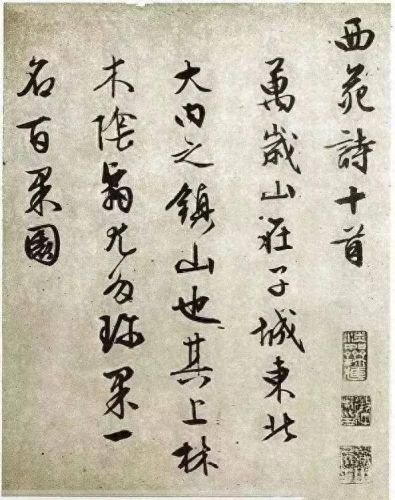 西苑詩十首
萬歲山在子城東北
大內之鎮山也其上林
木陰翳尤多珍果一
名百果園